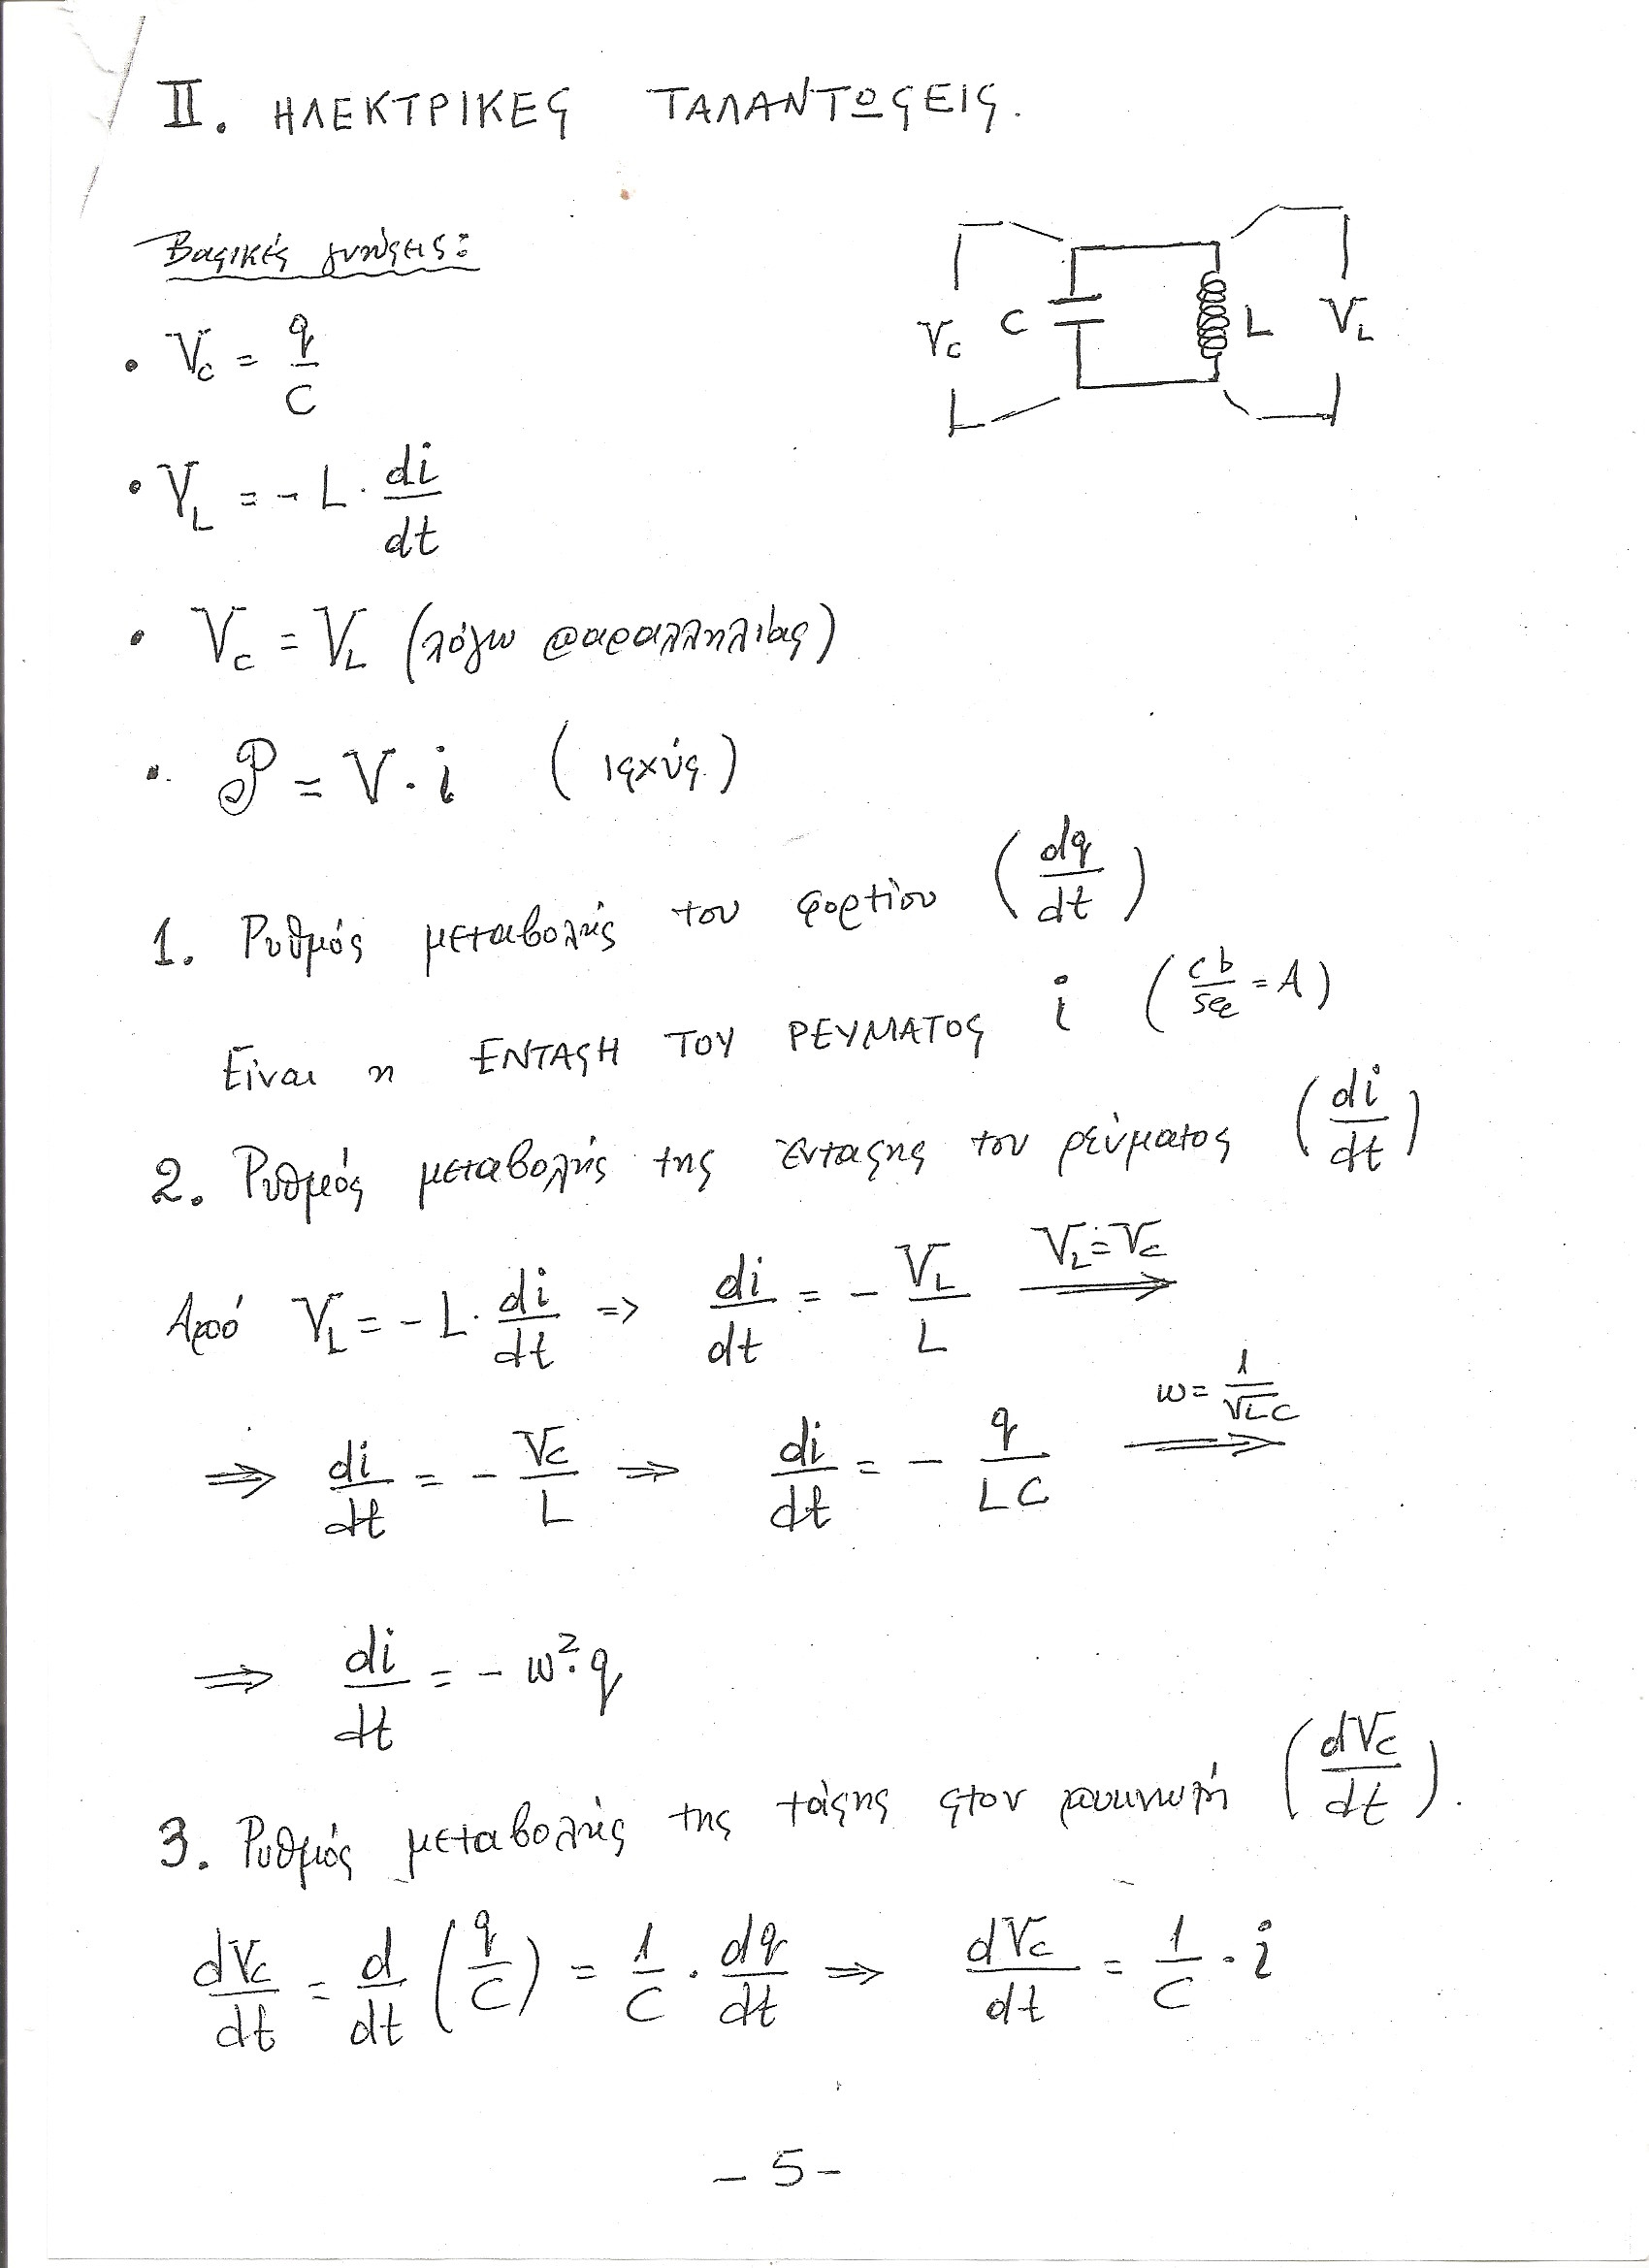 II. ΗΛΕΚΤΡΙΚΕς ΤΑΛΑΝΤΩςΕΙς.
Βασικές γνώσεις:
• V_C = q/C
• V_L = - L · di/dt
• V_C = V_L (λόγω παραλληλίας)
• P = V · i (ισχύς.)
C L V_C V_L
1. Ρυθμός μεταβολής του φορτίου (dq/dt)
Είναι η ΕΝΤΑςΗ ΤΟΥ ΡΕΥΜΑΤΟς i (cb/sec = A)
2. Ρυθμός μεταβολής της έντασης του ρεύματος (di/dt)
Από V_L = - L · di/dt => di/dt = - V_L/L ⟹ V_L = V_C
⟹ di/dt = - V_C/L ⟹ di/dt = - q/LC ⟹ ω = 1/√LC
⟹ di/dt = - ω² · q
3. Ρυθμός μεταβολής της τάσης στον πυκνωτή (dV_C/dt).
dV_C/dt = d/dt (q/C) = 1/C · dq/dt ⟹ dV_C/dt = 1/C · i
- 5 -